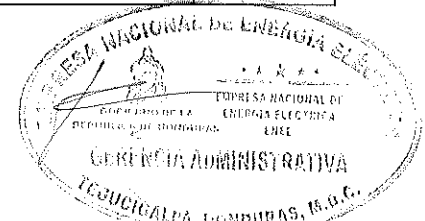 EMPRESA NACIONAL DE ENERGIA ELECTRICA
* * * * *
GOBIERNO DE LA
REPUBLICA DE HONDURAS
EMPRESA NACIONAL DE
ENERGIA ELECTRICA
ENEE
GERENCIA ADMINISTRATIVA
TEGUCIGALPA, HONDURAS, M.D.C.